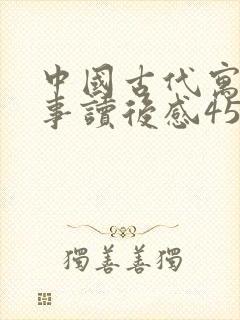 中國古代寓
事讀後感45
獨善善獨